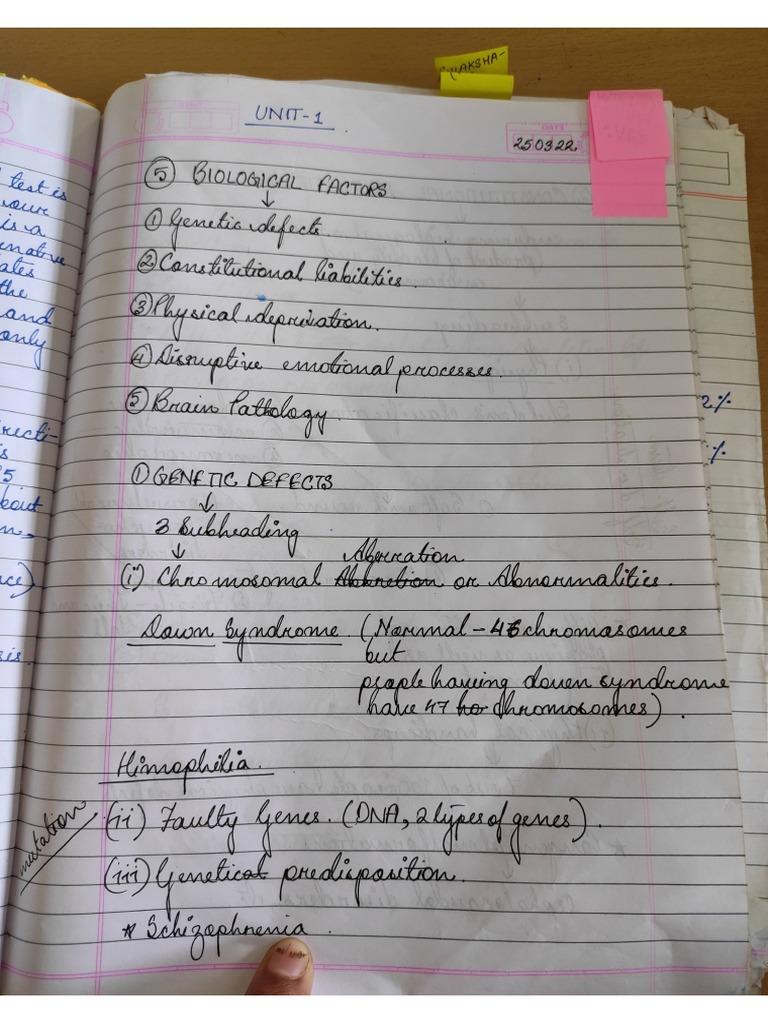 UNIT-1
DATE
250322
⑤ BIOLOGICAL FACTORS
↓
① Genetic defects.
② Constitutional liabilities.
③ Physical deprivation.
④ Disruptive emotional processes.
⑤ Brain Pathology.
① GENETIC DEFECTS
↓
3 Subheading
↓
Aberration
(i) Chromosomal or Abnormalities.
Down Syndrome. (Normal - 46 chromosomes
but
people having down syndrome
have 47 chromosomes).
Himophilia.
mutation
(ii) Faulty Genes. (DNA, 2 types of genes).
(iii) Genetical predisposition.
* Schizophrenia.
test is
is a
ates
the
and
only
recti-
is
5
bout
2%
%